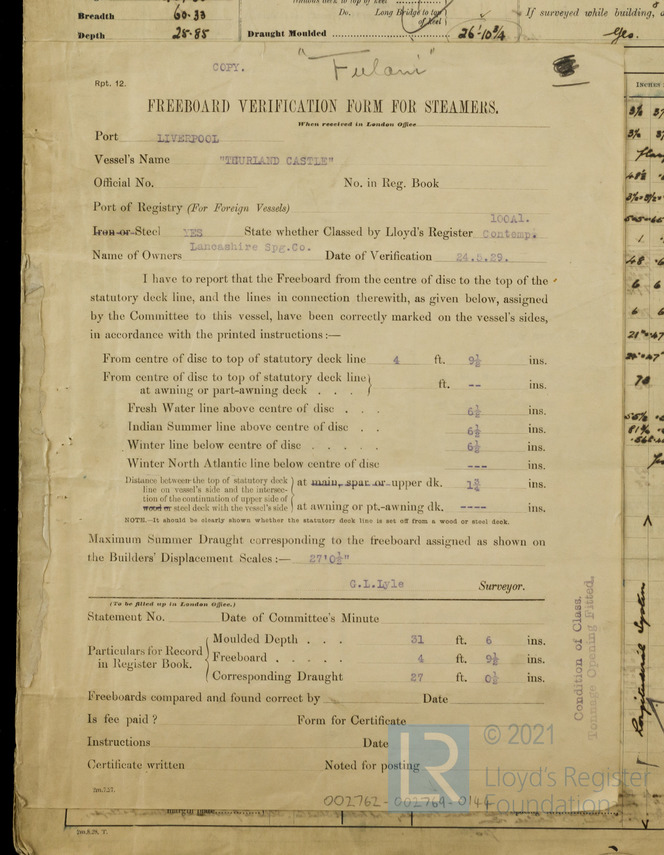 Breadth 60.33
Depth 28.85 Draught Moulded 26'-10¾
Do. Long Bridge to top of keel
If surveyed while building,
Yes.
"Fulani"
COPY.
Rpt. 12.
FREEBOARD VERIFICATION FORM FOR STEAMERS.
When received in London Office
Port LIVERPOOL
Vessel's Name "THURLAND CASTLE"
Official No. No. in Reg. Book
Port of Registry (For Foreign Vessels)
100A1.
Iron or Steel YES State whether Classed by Lloyd's Register Contemp.
Name of Owners Lancashire Spg.Co. Date of Verification 24.5.29.
I have to report that the Freeboard from the centre of disc to the top of the
statutory deck line, and the lines in connection therewith, as given below, assigned
by the Committee to this vessel, have been correctly marked on the vessel's sides,
in accordance with the printed instructions:—
From centre of disc to top of statutory deck line 4 ft. 9½ ins.
From centre of disc to top of statutory deck line
at awning or part-awning deck . . . ft. -- ins.
Fresh Water line above centre of disc . . . 6½ ins.
Indian Summer line above centre of disc . 6½ ins.
Winter line below centre of disc . . . . . 6½ ins.
Winter North Atlantic line below centre of disc --- ins.
Distance between the top of statutory deck
line on vessel's side and the intersec-
tion of the continuation of upper side of
wood or steel deck with the vessel's side
at main, spar or upper dk. 1¾ ins.
at awning or pt.-awning dk. ---- ins.
NOTE.—It should be clearly shown whether the statutory deck line is set off from a wood or steel deck.
Maximum Summer Draught corresponding to the freeboard assigned as shown on
the Builders' Displacement Scales:— 27'0½"
G.L.Lyle Surveyor.
(To be filled up in London Office.)
Statement No. Date of Committee's Minute
Particulars for Record
in Register Book.
Moulded Depth . . . 31 ft. 6 ins.
Freeboard . . . . . 4 ft. 9½ ins.
Corresponding Draught 27 ft. 0½ ins.
Freeboards compared and found correct by Date
Is fee paid? Form for Certificate
Instructions Date
Certificate written Noted for posting
2m.7.27.
002762-002769-0144
Condition of Class.
Tonnage Opening Fitted.
Longitudinal System
INCHES
2m.8.29. T.
LR
© 2021
Lloyd's Register
Foundation